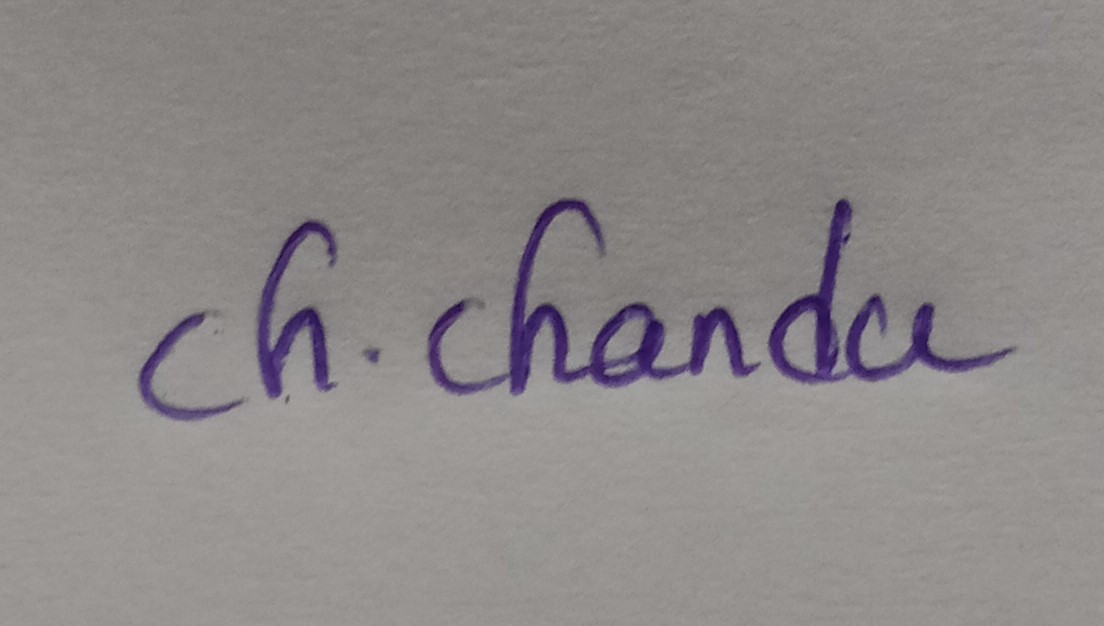 ch. chandu